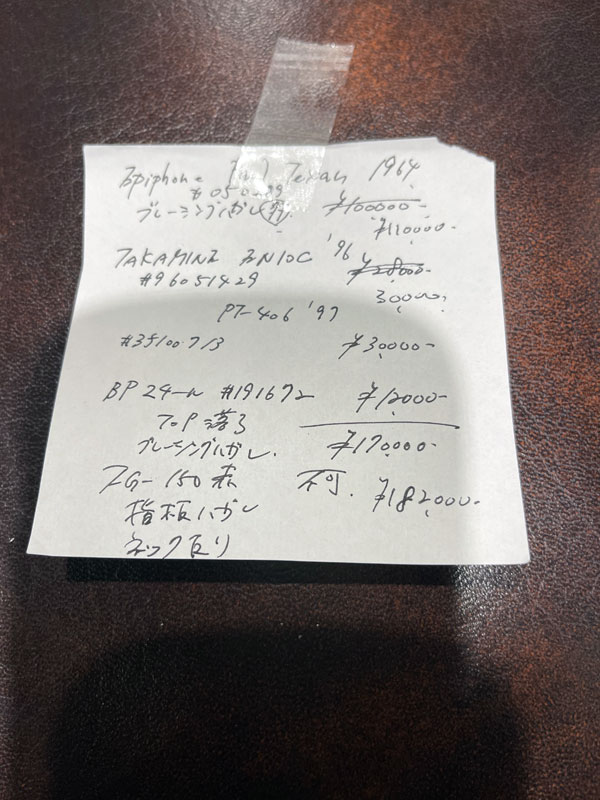 Epiphone Texan 1964
ブレーシングハガレ ¥100000-
¥110000-
TAKAMINE EN10C '96 ¥28000-
#96051429 30000
PT-406 '97
#35100713 ¥30000-
BP 24ール #191672 ¥12000-
TOP落ろ ¥170000-
ブレーシングハガレ.
-150 不可. ¥182000-
指板ハガレ
ネック反り